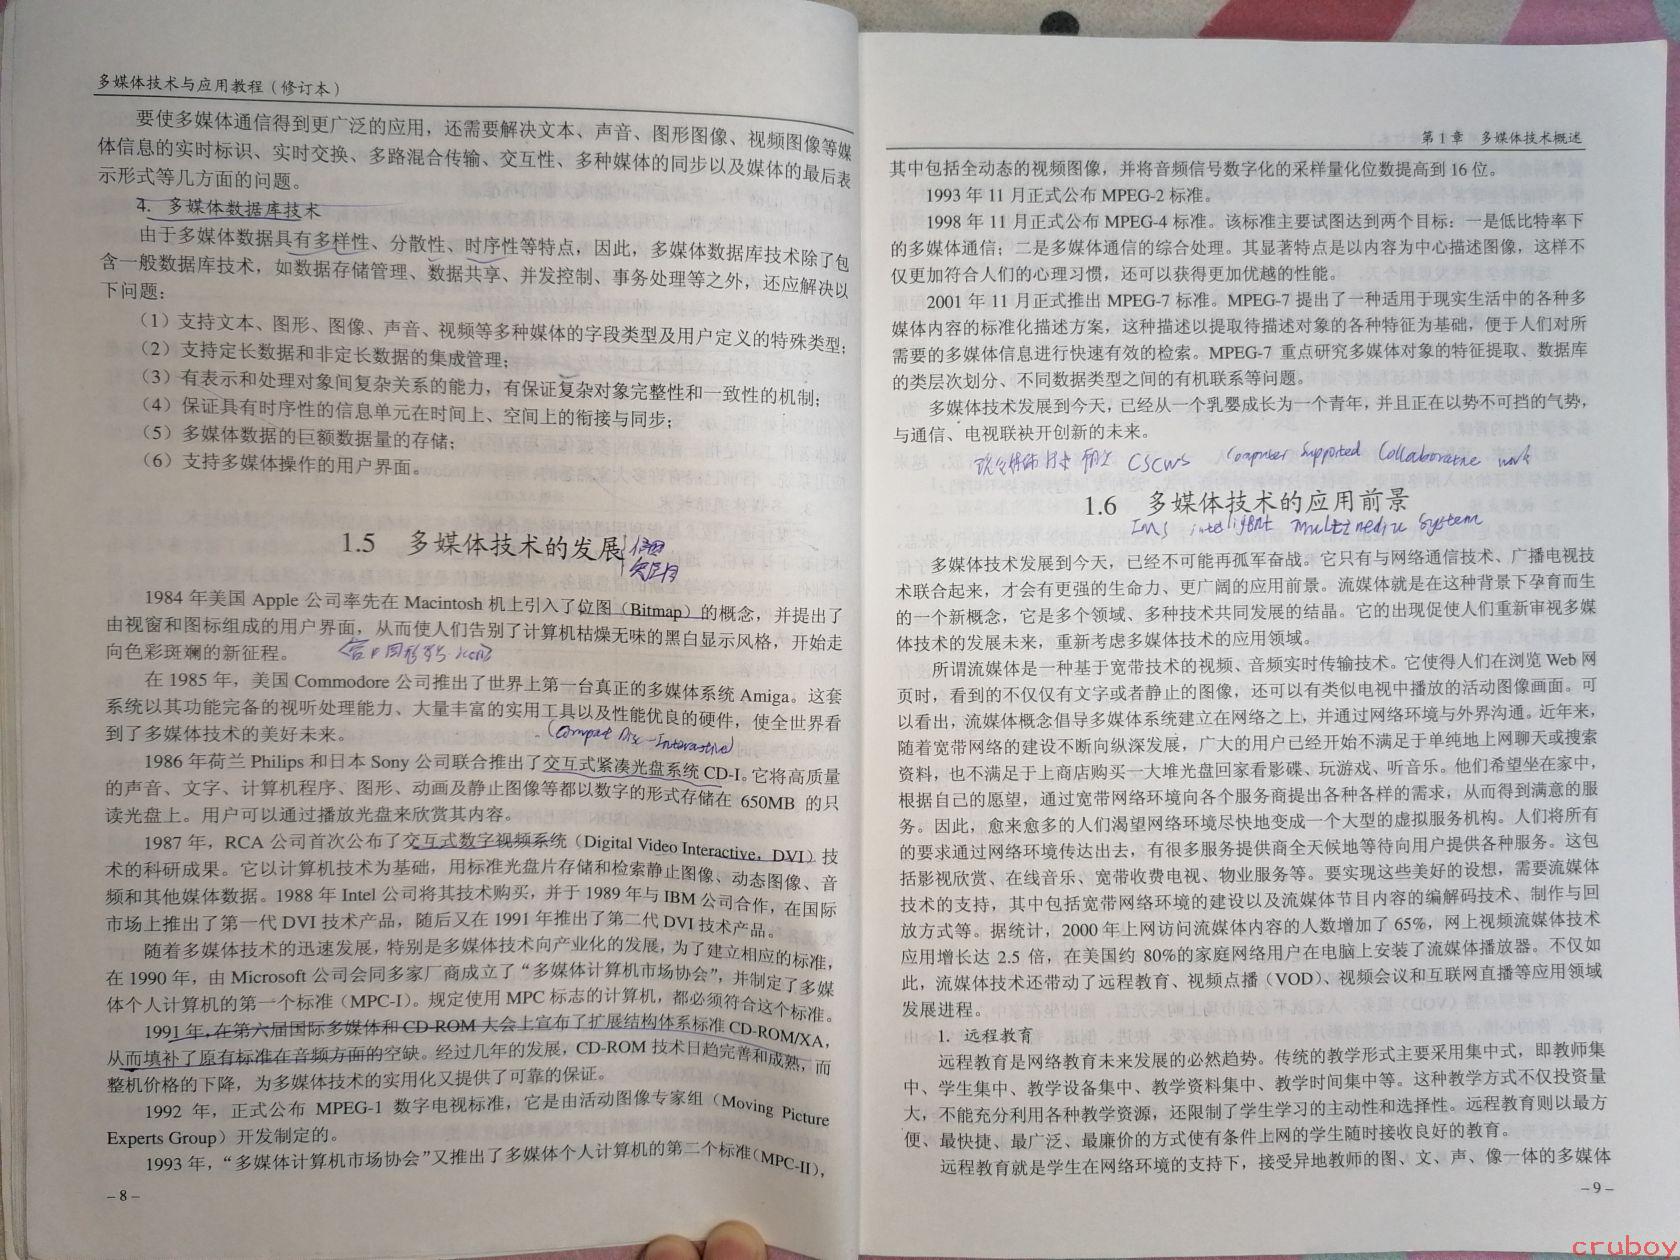 多媒体技术与应用教程（修订本）
要使多媒体通信得到更广泛的应用，还需要解决文本、声音、图形图像、视频图像等媒
体信息的实时标识、实时交换、多路混合传输、交互性、多种媒体的同步以及媒体的最后表
示形式等几方面的问题。
4. 多媒体数据库技术
由于多媒体数据具有多样性、分散性、时序性等特点，因此，多媒体数据库技术除了包
含一般数据库技术，如数据存储管理、数据共享、并发控制、事务处理等之外，还应解决以
下问题：
（1）支持文本、图形、图像、声音、视频等多种媒体的字段类型及用户定义的特殊类型；
（2）支持定长数据和非定长数据的集成管理；
（3）有表示和处理对象间复杂关系的能力，有保证复杂对象完整性和一致性的机制；
（4）保证具有时序性的信息单元在时间上、空间上的衔接与同步；
（5）多媒体数据的巨额数据量的存储；
（6）支持多媒体操作的用户界面。
1.5 多媒体技术的发展
1984 年美国 Apple 公司率先在 Macintosh 机上引入了位图（Bitmap）的概念，并提出了
由视窗和图标组成的用户界面，从而使人们告别了计算机枯燥无味的黑白显示风格，开始走
向色彩斑斓的新征程。
在 1985 年，美国 Commodore 公司推出了世界上第一台真正的多媒体系统 Amiga。这套
系统以其功能完备的视听处理能力、大量丰富的实用工具以及性能优良的硬件，使全世界看
到了多媒体技术的美好未来。
(Compact Disc-Interactive)
1986 年荷兰 Philips 和日本 Sony 公司联合推出了交互式紧凑光盘系统 CD-I。它将高质量
的声音、文字、计算机程序、图形、动画及静止图像等都以数字的形式存储在 650MB 的只
读光盘上。用户可以通过播放光盘来欣赏其内容。
1987 年，RCA 公司首次公布了交互式数字视频系统（Digital Video Interactive，DVI）技
术的科研成果。它以计算机技术为基础，用标准光盘片存储和检索静止图像、动态图像、音
频和其他媒体数据。1988 年 Intel 公司将其技术购买，并于 1989 年与 IBM 公司合作，在国际
市场上推出了第一代 DVI 技术产品，随后又在 1991 年推出了第二代 DVI 技术产品。
随着多媒体技术的迅速发展，特别是多媒体技术向产业化的发展，为了建立相应的标准，
在 1990 年，由 Microsoft 公司会同多家厂商成立了“多媒体计算机市场协会”，并制定了多媒
体个人计算机的第一个标准（MPC-I）。规定使用 MPC 标志的计算机，都必须符合这个标准。
1991 年，在第六届国际多媒体和 CD-ROM 大会上宣布了扩展结构体系标准 CD-ROM/XA，
从而填补了原有标准在音频方面的空缺。经过几年的发展，CD-ROM 技术日趋完善和成熟，而
整机价格的下降，为多媒体技术的实用化又提供了可靠的保证。
1992 年，正式公布 MPEG-1 数字电视标准，它是由活动图像专家组（Moving Picture
Experts Group）开发制定的。
1993 年，“多媒体计算机市场协会”又推出了多媒体个人计算机的第二个标准（MPC-II），
– 8 –
第 1 章 多媒体技术概述
其中包括全动态的视频图像，并将音频信号数字化的采样量化位数提高到 16 位。
1993 年 11 月正式公布 MPEG-2 标准。
1998 年 11 月正式公布 MPEG-4 标准。该标准主要试图达到两个目标：一是低比特率下
的多媒体通信；二是多媒体通信的综合处理。其显著特点是以内容为中心描述图像，这样不
仅更加符合人们的心理习惯，还可以获得更加优越的性能。
2001 年 11 月正式推出 MPEG-7 标准。MPEG-7 提出了一种适用于现实生活中的各种多
媒体内容的标准化描述方案，这种描述以提取待描述对象的各种特征为基础，便于人们对所
需要的多媒体信息进行快速有效的检索。MPEG-7 重点研究多媒体对象的特征提取、数据库
的类层次划分、不同数据类型之间的有机联系等问题。
多媒体技术发展到今天，已经从一个乳婴成长为一个青年，并且正在以势不可挡的气势，
与通信、电视联袂开创新的未来。
CSCWS Computer Supported Collaborative work
1.6 多媒体技术的应用前景
IMS intelligent multimedia System
多媒体技术发展到今天，已经不可能再孤军奋战。它只有与网络通信技术、广播电视技
术联合起来，才会有更强的生命力、更广阔的应用前景。流媒体就是在这种背景下孕育而生
的一个新概念，它是多个领域、多种技术共同发展的结晶。它的出现促使人们重新审视多媒
体技术的发展未来，重新考虑多媒体技术的应用领域。
所谓流媒体是一种基于宽带技术的视频、音频实时传输技术。它使得人们在浏览 Web 网
页时，看到的不仅仅有文字或者静止的图像，还可以有类似电视中播放的活动图像画面。可
以看出，流媒体概念倡导多媒体系统建立在网络之上，并通过网络环境与外界沟通。近年来，
随着宽带网络的建设不断向纵深发展，广大的用户已经开始不满足于单纯地上网聊天或搜索
资料，也不满足于上商店购买一大堆光盘回家看影碟、玩游戏、听音乐。他们希望坐在家中，
根据自己的愿望，通过宽带网络环境向各个服务商提出各种各样的需求，从而得到满意的服
务。因此，愈来愈多的人们渴望网络环境尽快地变成一个大型的虚拟服务机构。人们将所有
的要求通过网络环境传达出去，有很多服务提供商全天候地等待向用户提供各种服务。这包
括影视欣赏、在线音乐、宽带收费电视、物业服务等。要实现这些美好的设想，需要流媒体
技术的支持，其中包括宽带网络环境的建设以及流媒体节目内容的编解码技术、制作与回
放方式等。据统计，2000 年上网访问流媒体内容的人数增加了 65%，网上视频流媒体技术
应用增长达 2.5 倍，在美国约 80%的家庭网络用户在电脑上安装了流媒体播放器。不仅如
此，流媒体技术还带动了远程教育、视频点播（VOD）、视频会议和互联网直播等应用领域
发展进程。
1. 远程教育
远程教育是网络教育未来发展的必然趋势。传统的教学形式主要采用集中式，即教师集
中、学生集中、教学设备集中、教学资料集中、教学时间集中等。这种教学方式不仅投资量
大，不能充分利用各种教学资源，还限制了学生学习的主动性和选择性。远程教育则以最方
便、最快捷、最广泛、最廉价的方式使有条件上网的学生随时接收良好的教育。
远程教育就是学生在网络环境的支持下，接受异地教师的图、文、声、像一体的多媒体
– 9 –
cruboy